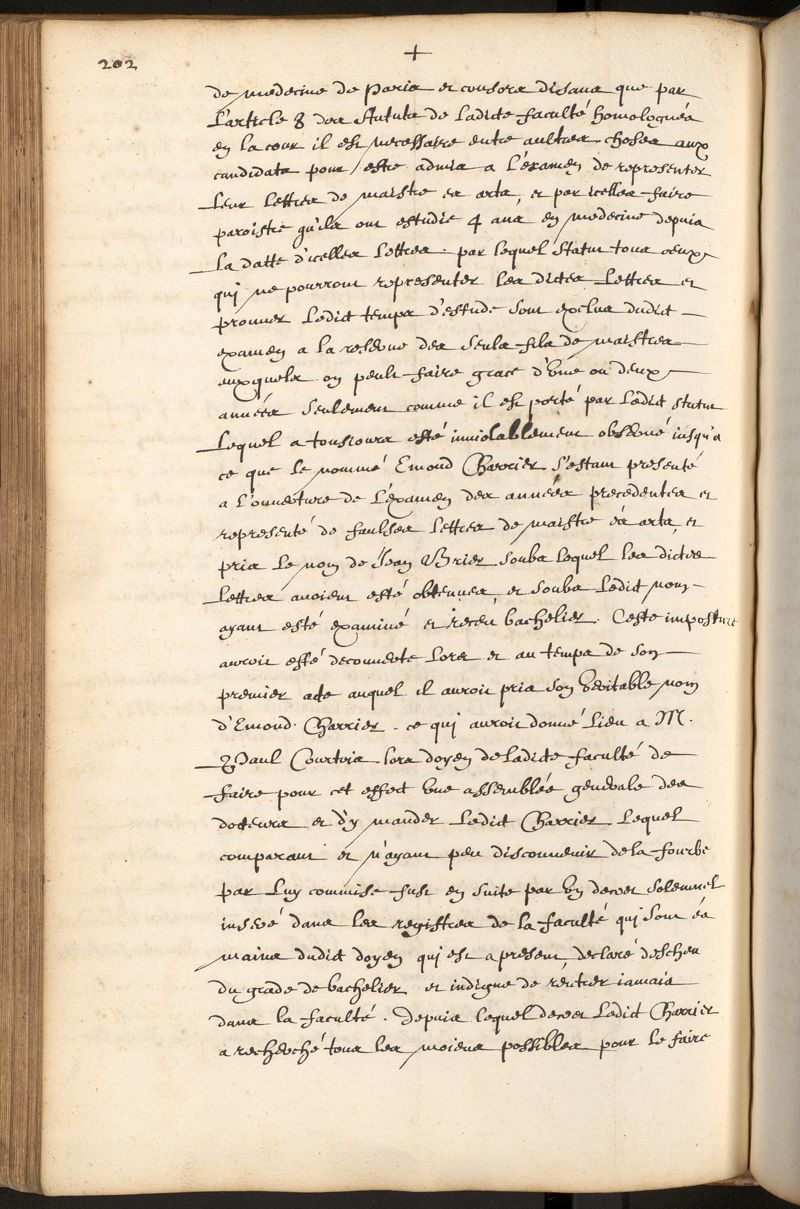 202
+
de medecine de Paris et consors disans que par
L'article 8 des statuts de ladicte faculté homologués
en la cour il est necessaire entre aultres choses aux
candidats pour estre admis a l'examen de representer
leur lettres de maistre es arts, et par icelles faire
paroistre qu'ils ont estudié 4 ans en medecine depuis
la datte d'icelles lettres. par lequel statut tous ceux
qui ne pourront representer les dictes lettres et
prouuer ledict temps d'estude sont exclus dudict
examen a la reserue des seuls fils de maistres
auxquels on peult faire grace d'vne ou deux
années seulement comme il est porté par ledict statut
lequel a tousiours esté inuiolablement obserué iusqu'a
ce que le nommé Emond Charrier s'estant presenté
a l'ouuerture de l'examen des années precedentes et
representé de faulses lettres de maistre és arts, et
pris le nom de Jean Brier soubs lequel les dictes
lettres auoient esté obtenues, et soubs ledict nom
ayant esté examiné et receu bachelier. Ceste imposture
auroit esté decouuerte lors et au temps de son
premier acte auquel il auroit pris son veritable nom
d'Emond Charrier. ce qui auroit donné lieu a M.
Paul Courtois lors doyen de ladicte faculté de
faire pour cet effect vne assemblée generale des
docteurs et d'y mander ledict Charrier lequel
comparant et n'ayant peu disconuenir de la fourbe
par luy commise fust en suite par vn decret solemnel
inseré dans les registres de la faculté qui sont és
mains dudict doyen qui est a present, declaré descheu
du grade de bachelier et indigne de rentrer iamais
dans la faculté. depuis lequel decret ledict Charrier
a recherché tous les moiens possibles pour le faire